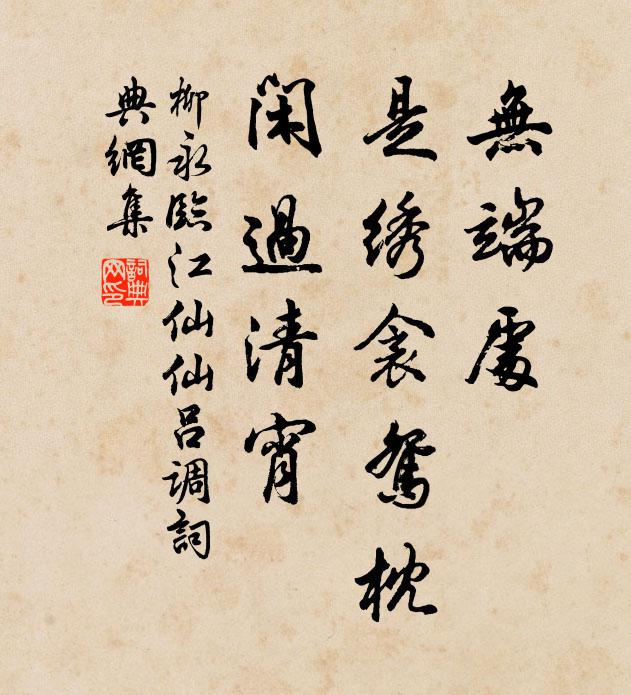 無端處
是绣衾鴛枕
閑過清宵
柳永臨江仙仙呂調詞
典網集
詞典网印